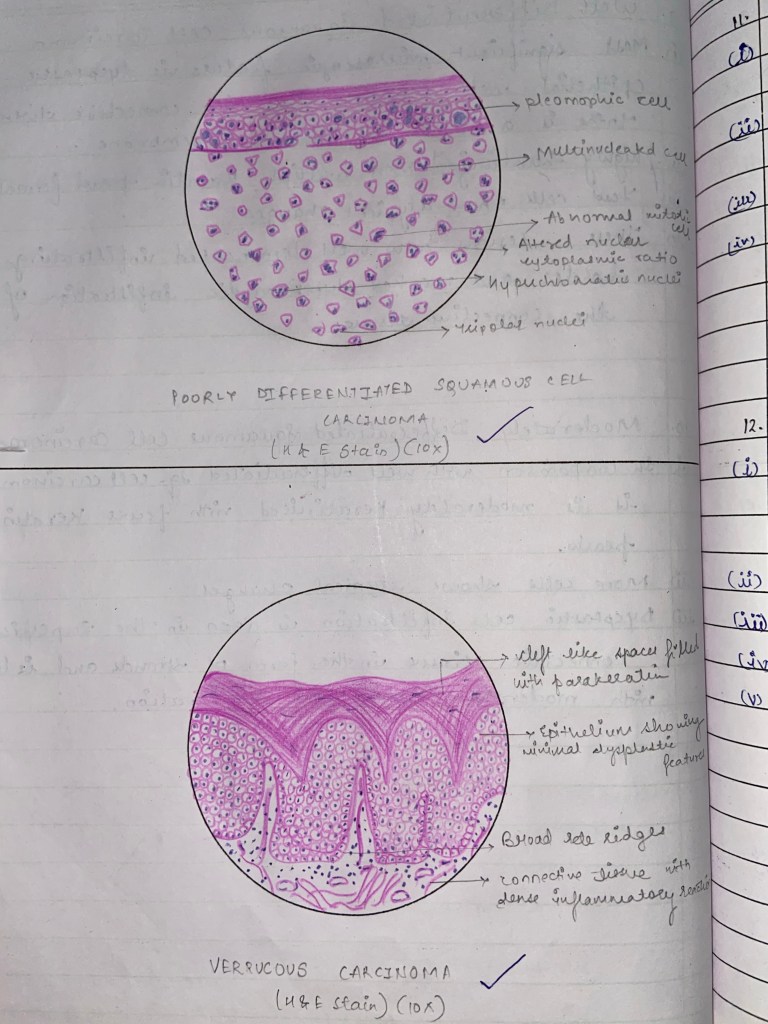 pleomophic cell
Multinucleatd cell
Abnormal mitotic
cell
Altered nuclear
cytoplasmic ratio
Hypuchromatic nuclei
tripolar nuclei
POORLY DIFFERENTIATED SQUAMOUS CELL
CARCINOMA
(H & E Stain) (10x)
cleft like spaces filled
with parakeratin
Epithelium showing
minimal dysplastic
features
Broad rete ridges
connective tissue with
dense inflammatory
VERRUCOUS CARCINOMA
(H & E Stain) (10x)
11.
(i)
(ii)
(iii)
(iv)
12.
(i)
(ii)
(iii)
(iv)
(v)